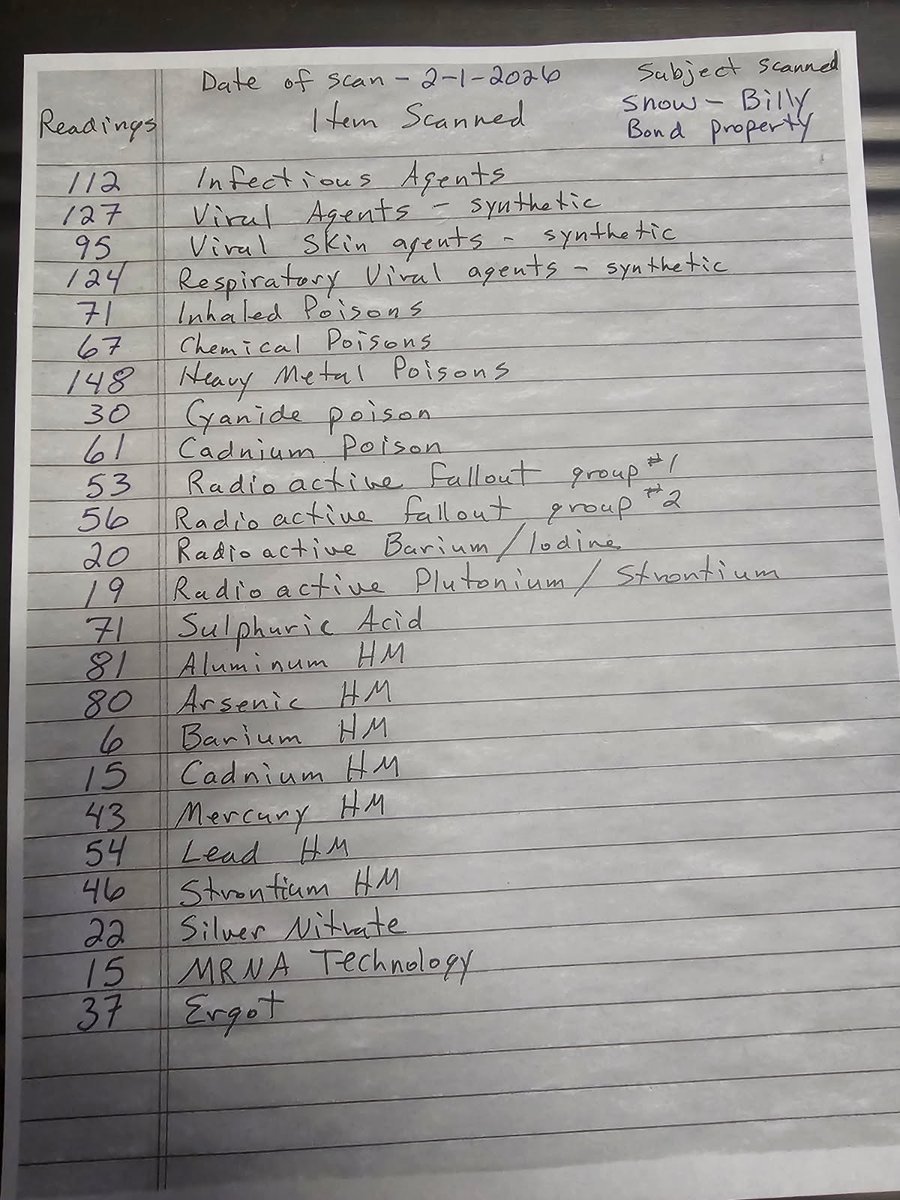 Date of scan - 2-1-2026
Subject scanned
Snow - Billy
Bond property
Readings
Item Scanned
112 Infectious Agents
127 Viral Agents - synthetic
95 Viral Skin agents - synthetic
124 Respiratory Viral agents - synthetic
71 Inhaled Poisons
67 Chemical Poisons
148 Heavy Metal Poisons
30 Cyanide poison
61 Cadnium Poison
53 Radio active Fallout group #1
56 Radio active fallout group #2
20 Radioactive Barium/Iodine
19 Radioactive Plutonium/Strontium
71 Sulphuric Acid
81 Aluminum HM
80 Arsenic HM
6 Barium HM
15 Cadnium HM
43 Mercury HM
54 Lead HM
46 Strontium HM
22 Silver Nitrate
15 MRNA Technology
37 Ergot